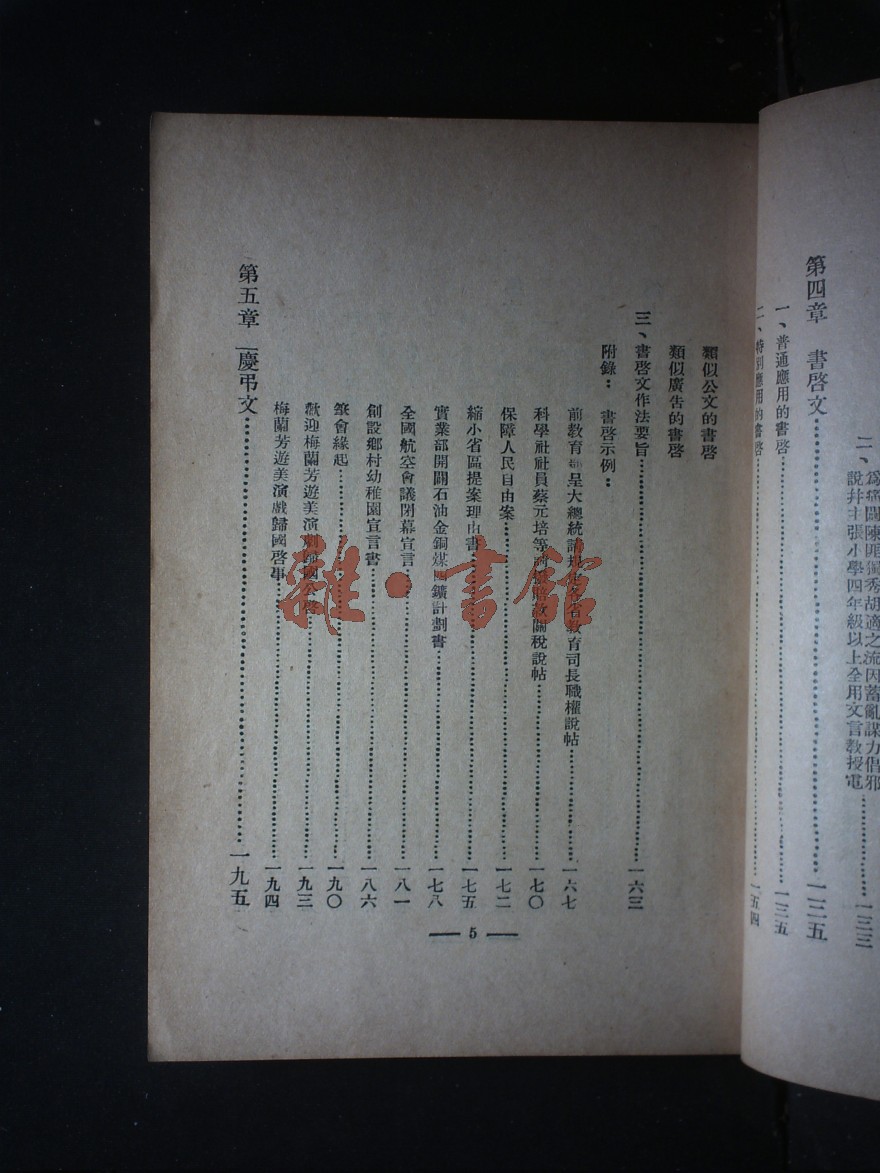 二、
爲痛闢陳匪獨秀胡適之流因蓄亂謀力倡邪
說幷主張小學四年級以上全用文言教授電……一三三
第四章 書啓文……一二五
一、普通應用的書啓……一三五
二、特別應用的書啓……一五四
類似公文的書啓
類似廣告的書啓
三、書啓文作法要旨……一六三
附錄：書啓示例：
前教育部呈大總統請規定各省教育司長職權說帖……一六七
科學社社員蔡元培等 賠款關稅說帖……一七〇
保障人民自由案……一七二
縮小省區提案理由書……一七五
實業部開闢石油金銅煤四鑛計劃書……一七八
全國航空會議閉幕宣言……一八一
創設鄉村幼稚園宣言書……一八六
篴會緣起……一九〇
歡迎梅蘭芳遊美演劇歸國公啓……一九三
梅蘭芳遊美演戲歸國啓事……一九四
第五章 慶弔文……一九五
— 5 —
雜·書館